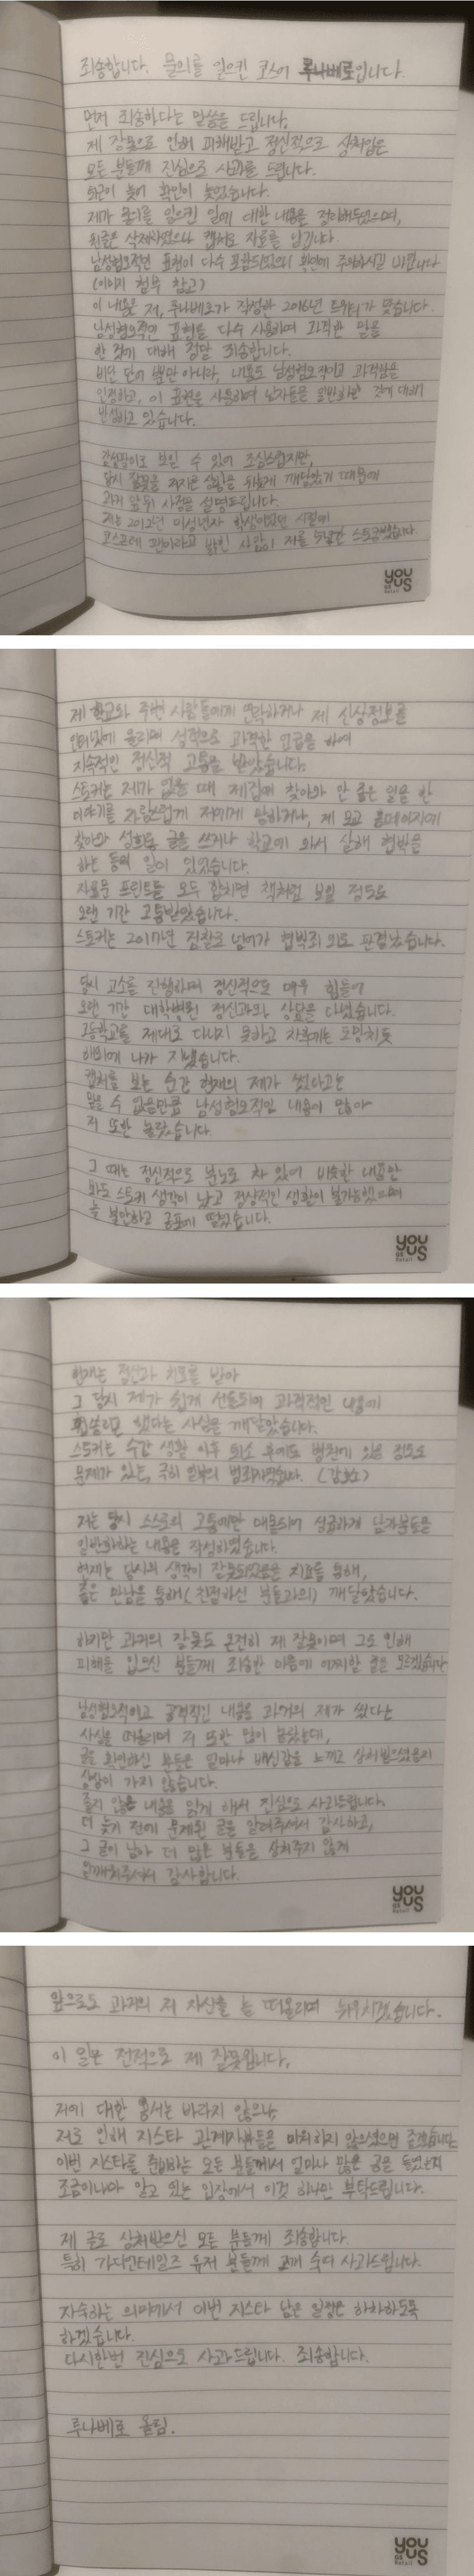 죄송합니다. 물의를 일으킨 코스어 루나베로입니다.
먼저 죄송하다는 말씀을 드립니다.
제 잘못으로 인해 피해받고 정신적으로 상처입은
모든 분들께 진심으로 사과를 드립니다.
퇴근이 늦어 확인이 늦었습니다.
제가 물의를 일으킨 일에 대한 내용을 정리해두었으며,
뒤글은 삭제하였으나 캡쳐로 자료를 남깁니다.
남성혐오적인 표현이 다수 포함되었으니 확인에 주의하시길 바랍니다
(이미지 첨부 참고)
이 내용은 저, 루나베로가 작성한 2016년 트위터가 맞습니다.
남성혐오적인 표현을 다수 사용하며 과격한 말을
한 것에 대해 정말 죄송합니다.
비단 단어 뿐만 아니라, 내용도 남성혐오적이고 과격함을
인정하고, 이 표현을 사용하며 남자들을 일반화한 것에 대해
반성하고 있습니다.
감성팔이로 보일 수 있어 조심스럽지만,
당시 잘못을 저지른 상황을 뒤늦게 깨달았기 때문에
과거 앞뒤 사정을 설명드립니다.
저는 2012년 미성년자 학생이었던 시절에
코스프레 팬이라고 밝힌 사람이 저를 스토킹했습니다.
you
us
GS Retail
제 학교와 주변 사람들에게 연락하거나 제 신상정보를
인터넷에 올리며 성적으로 과격한 언급을 하여
지속적인 정신적 고통을 받았습니다.
스토커는 제가 없을 때 제집에 찾아와 안 좋은 일을 한
이야기를 자랑스럽게 저에게 말하거나, 제 모교 홈페이지에
찾아와 성희롱 글을 쓰거나 학교에 와서 살해 협박을
하는 등의 일이 있었습니다.
자료를 프린트를 모두 합치면 책처럼 보일 정도로
오랜 기간 고통받았습니다.
스토커는 2017년 검찰로 넘어가 협박죄 외로 판결났습니다.
당시 고소를 진행하며 정신적으로 매우 힘들어
오랜 기간 대학병원 정신과와 상담을 다녔습니다.
고등학교를 제대로 다니지 못하고 차후에는 도망치듯
해외에 나가 지냈습니다.
캡쳐를 보는 순간 현재의 제가 썼다고는
믿을 수 없을만큼 남성혐오적인 내용이 많아
저 또한 놀랐습니다.
그 때는 정신적으로 분노로 차 있어 비슷한 내용만
봐도 스토커 생각이 났고 정상적인 생활이 불가능했으며
늘 불안하고 공포에 떨었습니다.
you
us
GS Retail
현재는 정신과 치료를 받아
그 당시 제가 쉽게 선동되어 과격적인 내용에
휩쓸리곤 했다는 사실을 깨달았습니다.
스토커는 수감 생활 이후 퇴소 후에도 병원에 있을 정도로
문제가 있는, 극히 일부의 범죄자였습니다. (감호소)
저는 당시 스스로의 고통에만 매몰되어 성급하게 남자분들을
일반화하는 내용을 작성하였습니다.
현재는 당시의 생각이 잘못되었음을 치료를 통해,
좋은 만남을 통해(친절하신 분들과의) 깨달았습니다.
하지만 과거의 잘못도 온전히 제 잘못이며 그로 인해
피해를 입으신 분들께 죄송한 마음에 어찌할 줄을 모르겠습니다
남성혐오적이고 공격적인 내용을 과거의 제가 썼다는
사실을 떠올리며 저 또한 많이 놀랐는데,
글을 확인하신 분들은 얼마나 배신감을 느끼고 상처받으셨을지
상상이 가지 않습니다.
좋지 않은 내용을 읽게 해서 진심으로 사과드립니다.
더 늦기 전에 문제된 글을 알려주셔서 감사하고,
그 글이 남아 더 많은 분들을 상처주지 않게
일깨워주셔서 감사합니다.
you
us
GS Retail
앞으로도 과거의 저 자신을 늘 떠올리며 뉘우치겠습니다.
이 일은 전적으로 제 잘못입니다.
저에 대한 용서는 바라지 않으나,
저로 인해 지스타 관계자분들은 미워하지 않으셨으면 좋겠습니다
이번 지스타를 준비하는 모든 분들께서 얼마나 많은 공을 들였는지
조금이나마 알고 있는 입장에서 이것 하나만 부탁드립니다.
제 글로 상처받으신 모든 분들께 죄송합니다.
특히 가디언테일즈 유저 분들께 고개 숙여 사과드립니다.
자숙하는 의미에서 이번 지스타 남은 일정은 하차하도록
하겠습니다.
다시한번 진심으로 사과드립니다. 죄송합니다.
루나베로 올림.
you
us
GS Retail